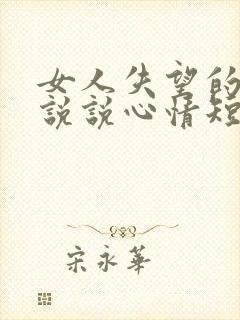 女人失望的
説說心情短
宋永華